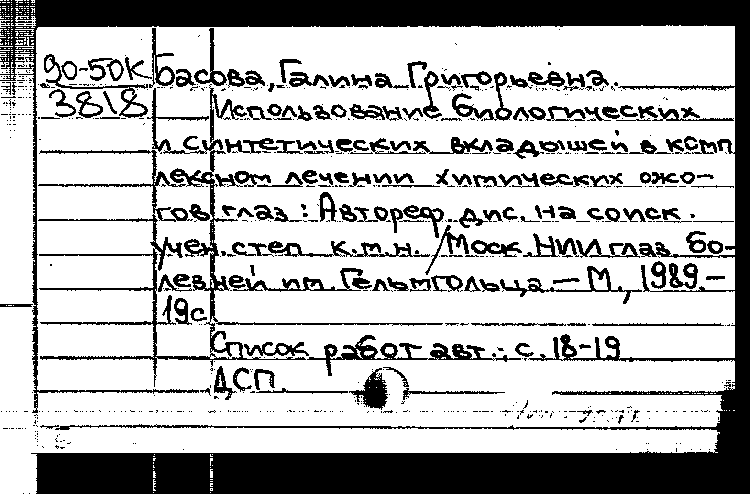 90-50К Басова, Галина Григорьевна.
3818 Использование биологических
и синтетических вкладышей в комп
лексном лечении химических ожо-
гов глаз: Автореф. дис. на соиск.
учен. степ. к.м.н. / Моск. НИИ глаз. бо-
лезней им. Гельмгольца. — М., 1989. —
19с
Список работ авт.: с. 18-19.
ДСП.